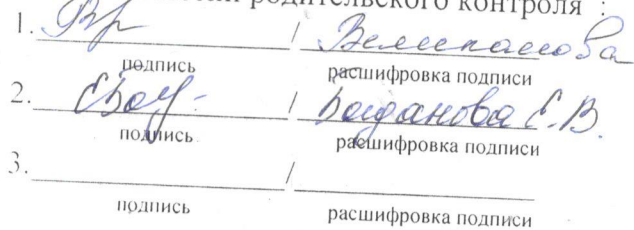 родительского контроля :
1. / Великанова
подпись расшифровка подписи
2. / Богданова Е.В.
подпись расшифровка подписи
3. /
подпись расшифровка подписи